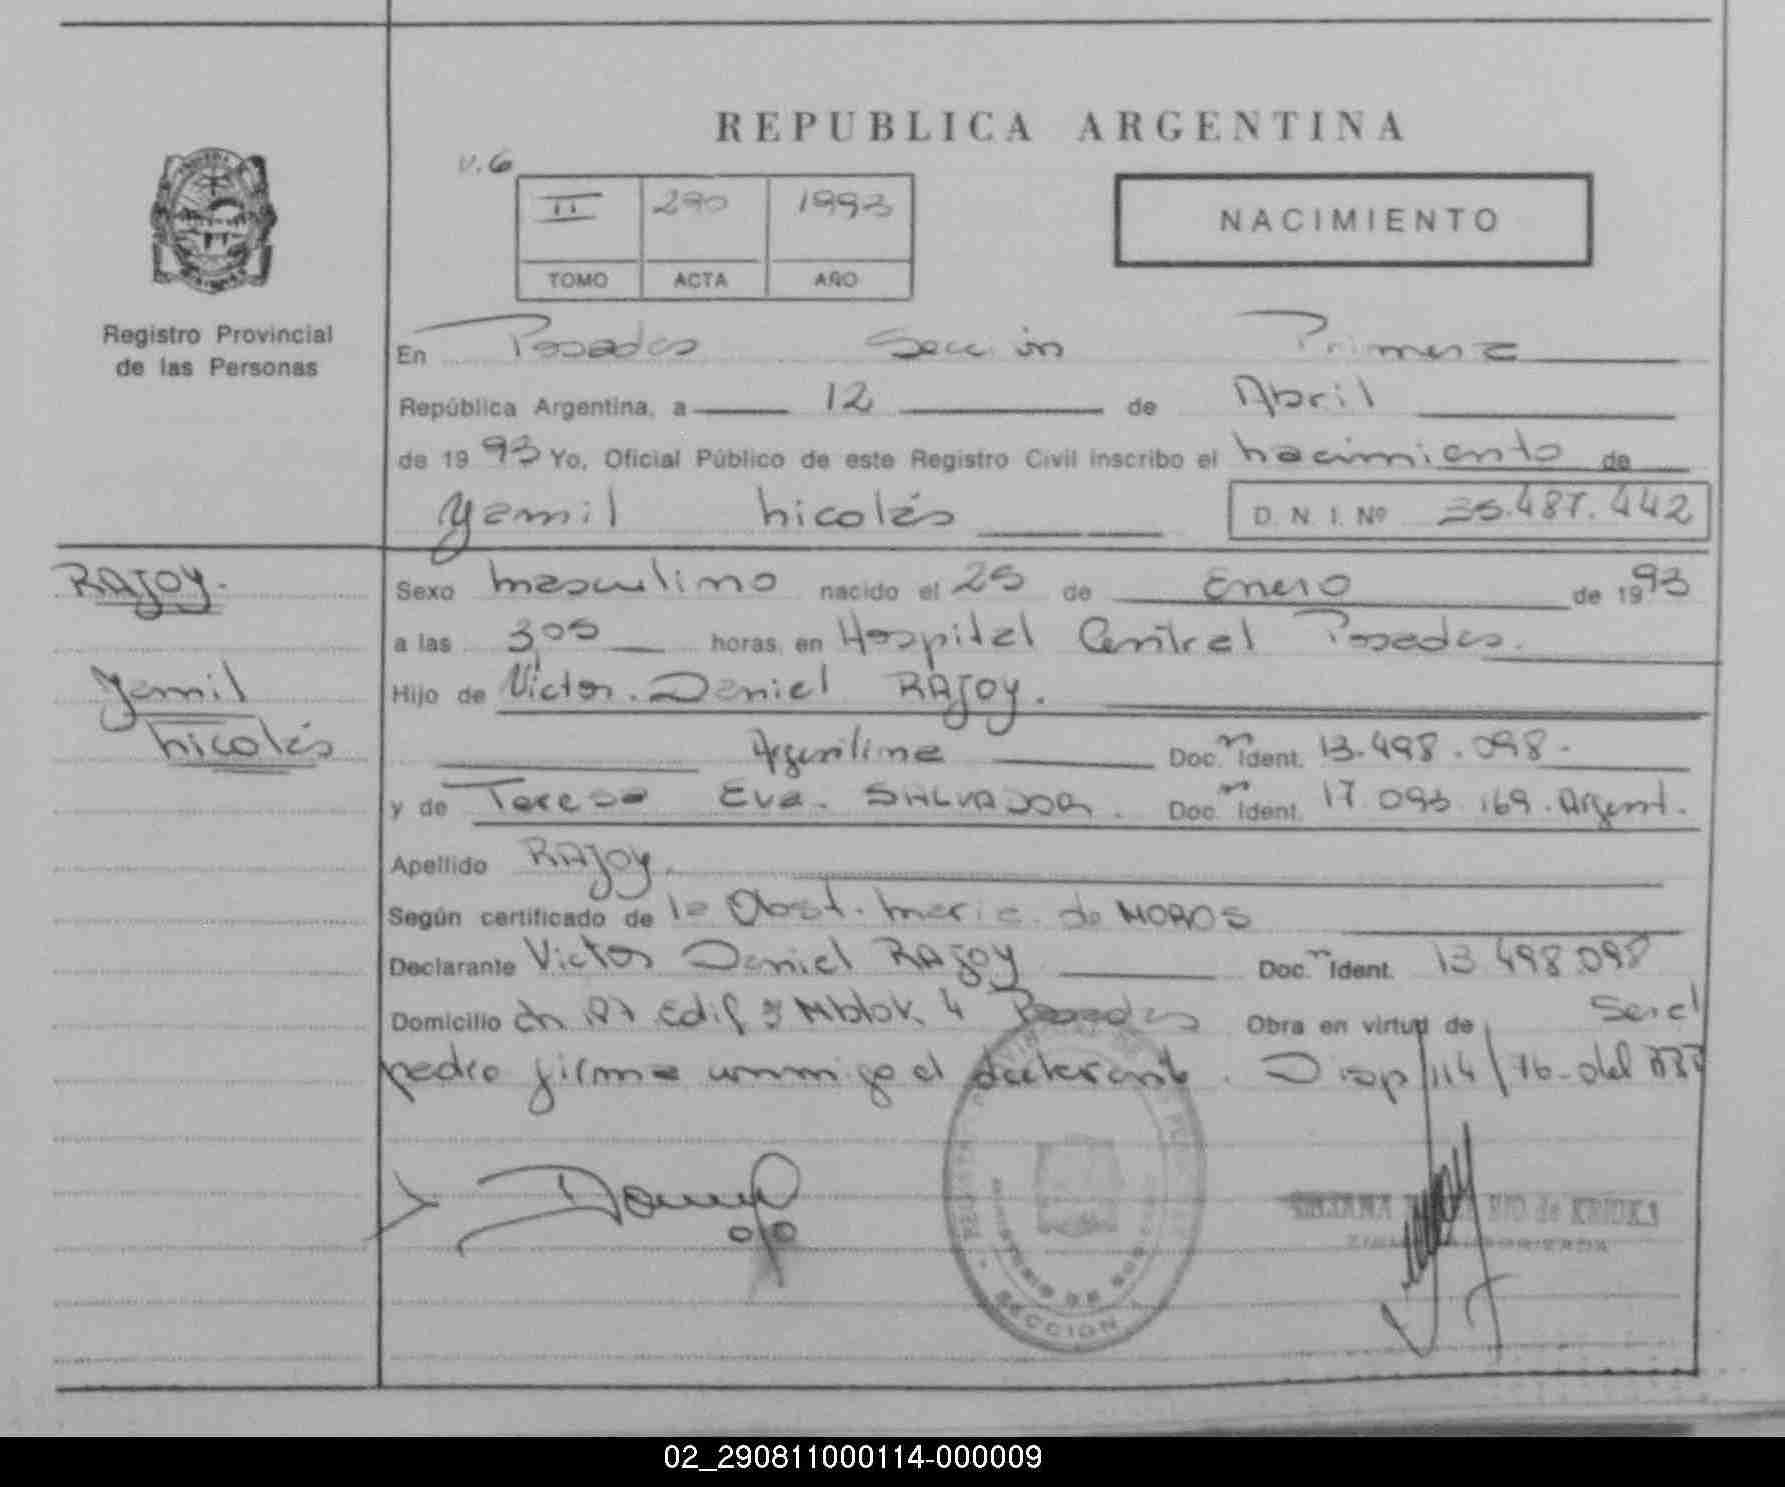 REPUBLICA ARGENTINA
v.6
II 290 1993
TOMO ACTA AÑO
NACIMIENTO
Registro Provincial
de las Personas
En Posadas Sección Primera
República Argentina, a 12 de Abril
de 1993 Yo, Oficial Público de este Registro Civil inscribo el nacimiento de
Yamil Nicolás D. N. I. Nº 35.487.442
RAJOY.
Yamil
Nicolás
Sexo masculino nacido el 25 de Enero de 1993
a las 3,05 horas, en Hospital Central Posadas.
Hijo de Victor. Daniel RAJOY.
Argentina Doc. Ident. 13.498.098.
y de Teresa Eva. SALVADOR. Doc. Ident. 17.093.169. Argent.
Apellido RAJOY.
Según certificado de la Obst. Maria. de MOROS
Declarante Victor Daniel RAJOY Doc. Ident. 13.498.098
Domicilio Edif Mblok 4 Posadas Obra en virtud de
firma el declarante. Disp/114/76. del
MINISTERIO DE
SECCION 1
de
AUTORIZADA
02_290811000114-000009